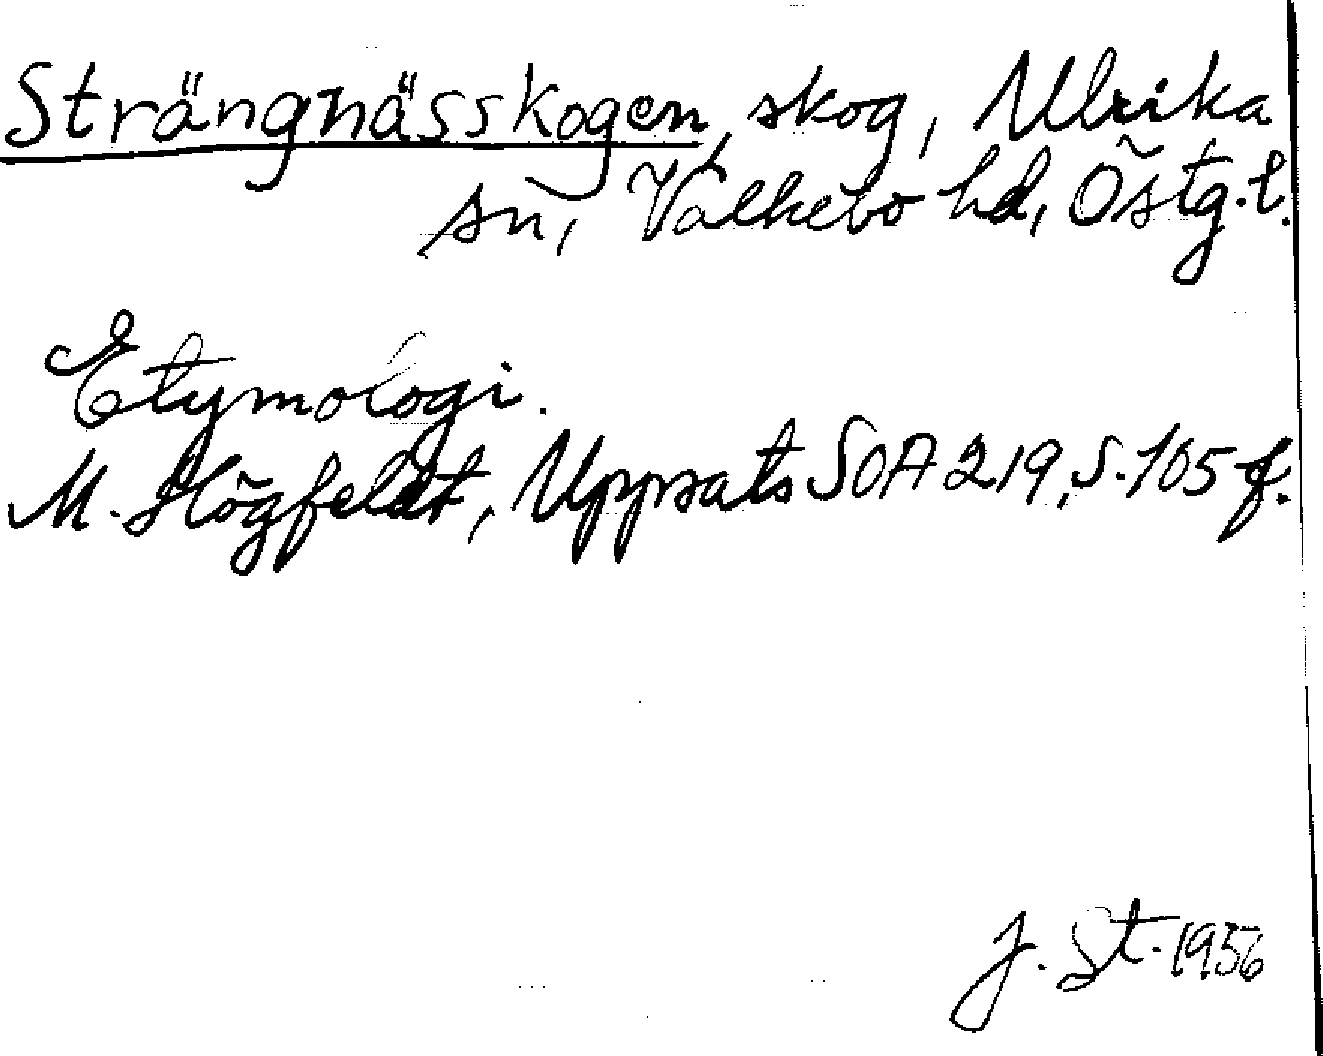 Strängnässkogen, skog, Ulrika
sn, Valkebo hd, Östg.l.
Etymologi.
M. Högfeldt, Uppsats SOA 219, s. 105 f.
J. St. 1956